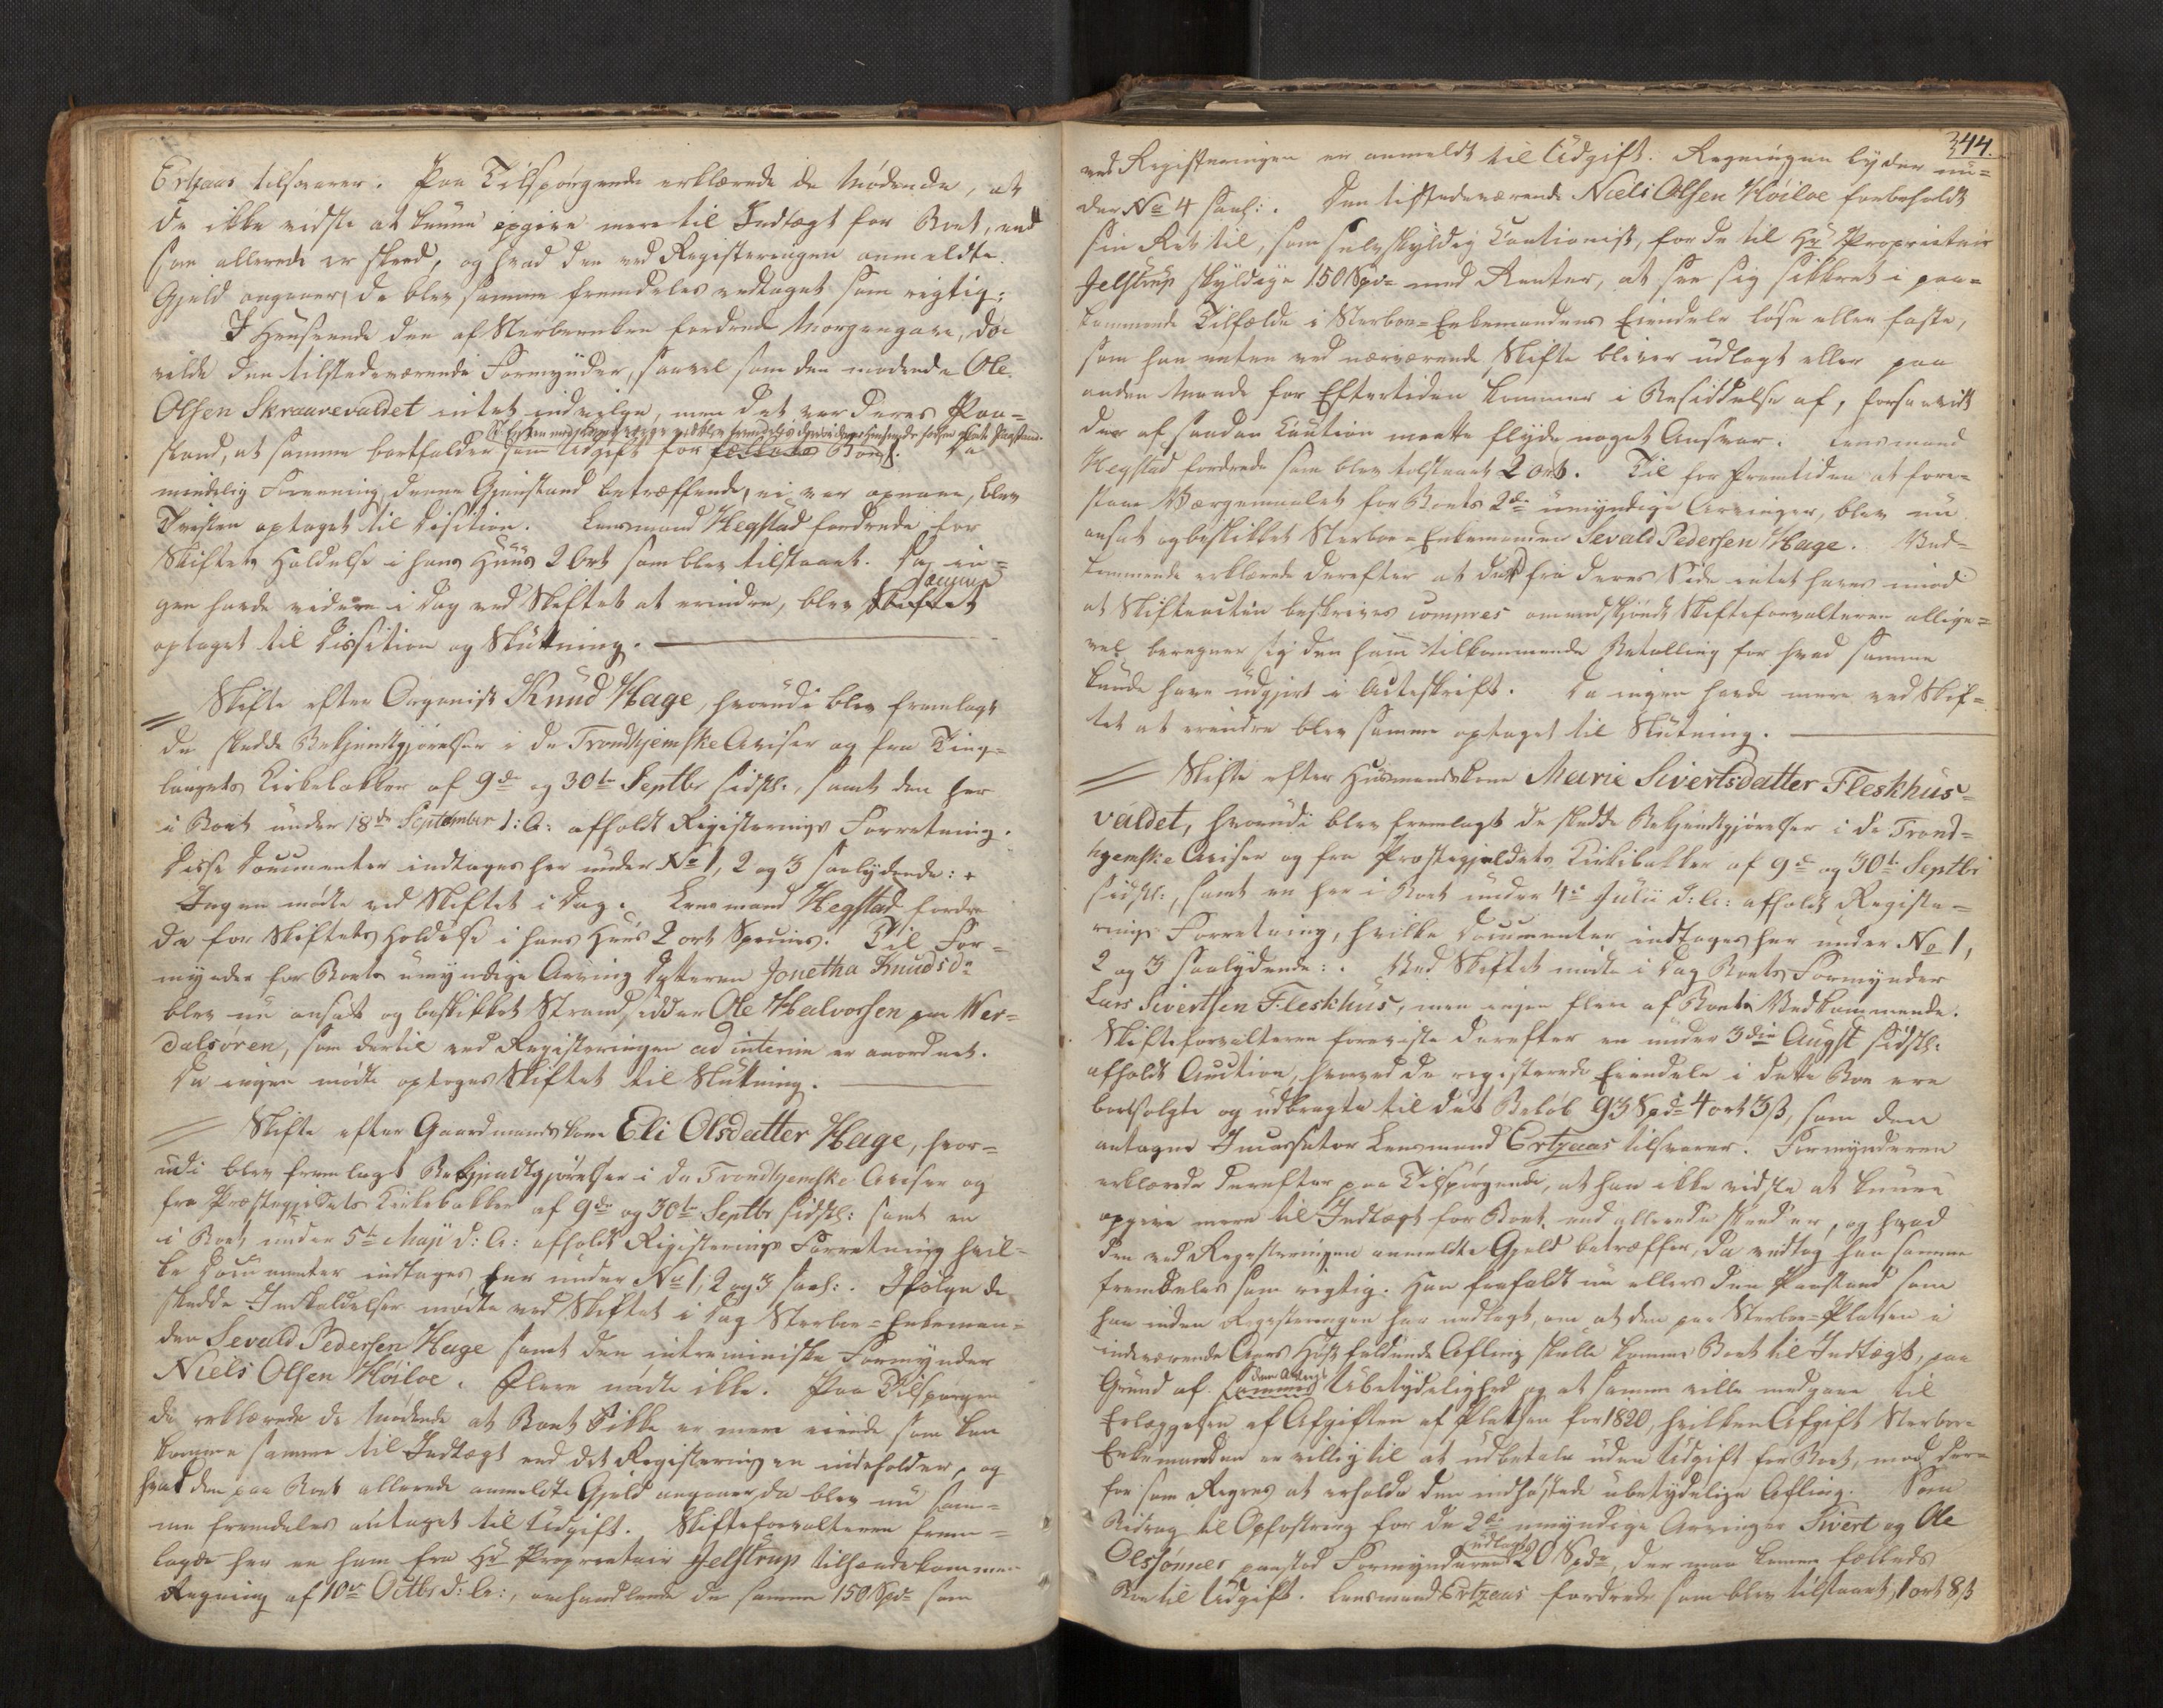 Ertzaas tilsvarer. Paa Tilspørgende erklærede de Mødende, at
de ikke vidste at kunne opgive mere til Indtægt for Boet, end
som allerede er skeed, og hvad den ved Registeringen anmeldte
Gjeld angaaer, da blev samme fremdeles vedtaget som rigtig;
I Henseende den af Sterboenken fordrede Morgengave, da
vilde den tilstedeværende Formynder, saavel som den mødende Ole
Olsen Skraavevaldet intet indvilge, men det var deres Paa-
stand, at samme bortfalder som Udgift for fælleds Boet. Da
mindelig Forening, denne Gjenstand betræffende, ei var opnaae, blev
Tvisten optaget til Decision. Lensmand Hegstad fordrede for
Skiftets Holdelse i hans Huus 2 Ort som blev tilstaaet. Da in-
gen havde videre i Dag ved Skiftet at erindre, blev Skiftet
optaget til Decision og Slutning.
Skifte efter Organist Knud Hage, hvorudi blev fremlagt
de skedde Bekjendtgjørelser i de Trondhjemske Aviser og fra Ting-
laugets Kirkebakker af 9de og 30te Septbr sidstl., samt den her
i Boet under 18de September d: A: afholdt Registerings Forretning.
Disse Documenter indtages her under No 1, 2 og 3 saalydende: +
Ingen mødte ved Skiftet i Dag. Lensmand Hegstad fordre-
de for Skiftets Holdelse i hans Huus 2 ort Species. Til For-
mynder for Boets umyndige Arving Datteren Jonetha Knudsdr
blev nu ansat og beskikket Strandsidder Ole Halvorsen paa Wer-
dalsøren, som dertil ved Registeringen ad interim er anordnet.
Da ingen mødte optoges Skiftet til Slutning.
Skifte efter Gaardmandskone Eli Olsdatter Hage, hvor-
udi blev fremlagt Bekjendtgjørelser i de Trondhjemske Aviser og
fra Præstegjeldets Kirkebakker af 9de og 30te Septbr sidstl: samt en
i Boet under 5te Maji d: A: afholdt Registerings Forretning hvil-
ke Documenter indtages her under No 1, 2 og 3 saal: . Ifølge de
skedde Indkaldelser mødte ved Skiftet i Dag Sterboe-Enkeman-
den Sevald Pedersen Hage samt den interimiske Formynder
Niels Olsen Høiloe. Flere mødte ikke. Paa Tilspørgen-
de erklærede de Mødende at Boet ikke er mere eiende som kan
komme samme til Indtægt end det Registeringen indeholder, og
hvad den paa Boet allerede anmeldte Gjeld angaaer, da blev nu sam-
me fremdeles antaget til Udgift. Skifteforvalteren frem-
lagde her en ham fra Hr Proprietair Jelstrup tilhændekommen
Regning af 10de Octbr d: A:, omhandlende de samme 150 Spd som
344.
ved Registeringen er anmeldt til Udgift. Regningen lyder un-
der No 4 saal: . Den tilstedeværende Niels Olsen Høiloe forbeholdt
sin Ret til, som selvskyldig Cautionist, for de til Hr Proprietair
Jelstrup skyldige 150 Spd med Renter, at see sig sikkret i paa-
kommende Tilfælde i Sterboe-Enkemandens Eiendele løse eller faste,
som han enten ved nærværende Skifte bliver udlagt eller paa
anden Maade for Eftertiden kommer i Besiddelse af, forsaavidt
der af saadan Caution maatte flyde noget Ansvar. Lensmand
Hegstad fordrede som blev tilstaaet 2 ort. Til for Fremtiden at fore-
staae Værgemaalet for Boets 2de umyndige Arvinger, blev nu
ansat og beskikket Sterboe-Enkemanden Sevald Pedersen Hage. Ved-
kommende erklærede derefter at der fra deres Side intet haves imod
at Skifteacten beskrives compres omendskjønt Skifteforvalteren allige-
vel beregner sig den ham tilkommende Betalling for hvad samme
kunde have udgjort i Acteskrift. Da ingen havde mere ved Skif-
tet at erindre blev samme optaget til Slutning.
Skifte efter Huusmandskone Marie Sivertsdatter Fleskhus-
valdet, hvorudi blev fremlagt de skedde Bekjendtgjørelser i de Trond-
hjemske Aviser og fra Præstegjeldets Kirkebakker af 9de og 30te Septbr
sidstl:, samt en her i Boet under 4de Julii d: A: afholdt Registe-
rings Forretning, hvilke Documenter indtages her under No 1,
2 og 3 saalydende: . Ved Skiftet mødte i Dag Boets Formynder
Lars Sivertsen Fleskhus, men ingen flere af Boets Vedkommende.
Skifteforvalteren foreviste derefter en under 3die Augst sidstl:
afholdt Auction, hvorved de registerede Eiendele i dette Boe ere
bortsolgte og udbragte til det Beløb 93 Spd 4 ort 3 ß, som den
antagne Incassator Lensmand Ertzaas tilsvarer. Formynderen
erklærede derefter paa Tilspørgende, at han ikke vidste at kunne
opgive mere til Indtægt for Boet, end allerede skeed er, og hvad
den ved Registeringen anmeldte Gjeld betræffer, da vedtog han samme
fremdeles som rigtig. Han frafaldt nu ellers den Paastand som
han inden Registeringen har nedlagt, om at den paa Sterboe-Pladsen i
indeværende Aars Høst faldende Afling skulle komme Boet til Indtægt, paa
Grund af sammes Ubetydelighed og at samme ville medgaae til
Erlæggelsen af Afgiften af Pladsen for 1820, hvilken Afgift Sterboe-
Enkemanden er villig til at udbetale uden Udgift for Boet, mod der-
for som Regres at erholde den indhøstede ubetydelige Afling. Som
Bidrag til Opfostring for de 2de umyndige Arvinger Sivert og Ole
Olssønner paastod Formynderen udlagt 20 Spd, der maa komme fælleds
Boe til Udgift. Lensmand Ertzaas fordrede som blev tilstaaet, 1 ort 8 ß